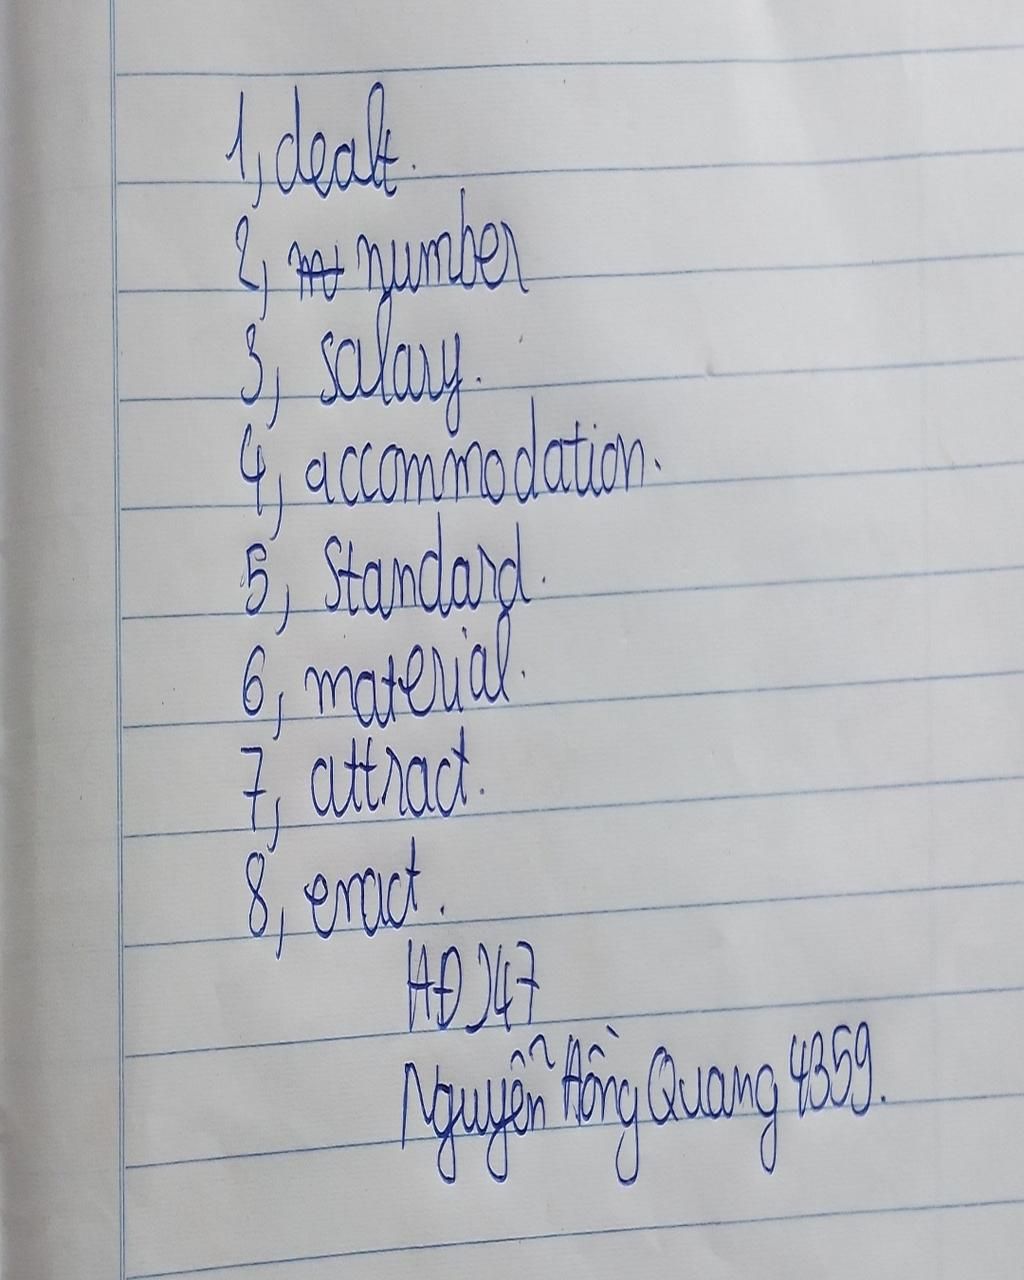 1, dealt.
2, number
3, salary.
4, accommodation.
5, Standard.
6, material.
7, attract.
8, enact.
HĐ 147
Nguyễn Hồng Quang 4359.